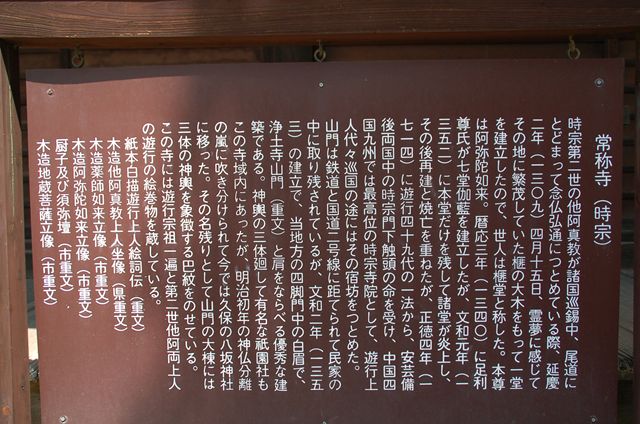 常称寺（時宗）
時宗第二世の他阿真教が諸国巡錫中、尾道に
とどまって念仏弘通につとめている際、延慶
二年（一三〇九）四月十五日、霊夢に感じて
その地に繁茂していた榧の大木をもって一堂
を建立したので、世人は榧堂と称した。本尊
は阿弥陀如来、暦応三年（一三四〇）に足利
尊氏が七堂伽藍を建立したが、文和元年（一
三五二）に本堂だけを残して諸堂が炎上し、
その後再建と焼亡を重ねたが、正徳四年（一
七一四）に遊行四十九代の一法から、安芸備
後両国中の時宗門下、触頭の命を受け、中国四
国九州では最高位の時宗寺院として、遊行上
人代々巡国の途にはその宿坊をつとめた。
山門は鉄道と国道二号線に距てられて民家の
中に取り残されているが、文和二年（一三五
三）の建立で、当地方の四脚門中の白眉で、
浄土寺山門（重文）と肩をならべる優秀な建
築である。神輿の三体廻しで有名な祇園社も
この寺域内にあったが、明治初年の神仏分離
の嵐に吹き分けられて今では久保の八坂神社
に移った。その名残りとして山門の大棟には
三体の神輿を象徴する巴紋をのせている。
この寺には遊行宗祖一遍と第二世他阿両上人
の遊行の絵巻物を蔵している。
紙本白描遊行上人絵詞伝（重文）
木造他阿真教上人坐像（県重文）
木造薬師如来立像（市重文）
木造阿弥陀如来立像（市重文）
厨子及び須弥壇（市重文）
木造地蔵菩薩立像（市重文）